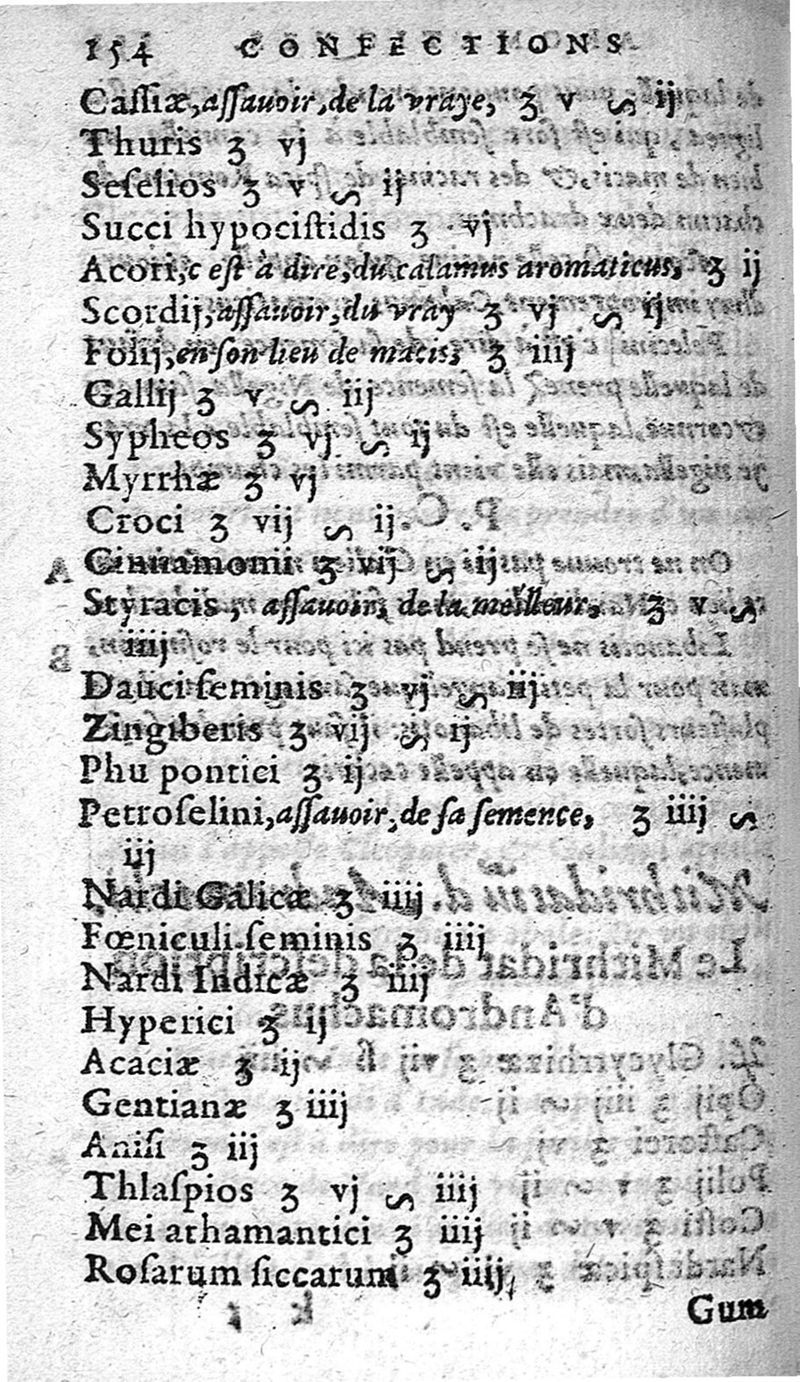 154 CONFECTIONS
Cassiæ, aſſauoir, de la vraye, ʒ v ᔕ ij
Thuris ʒ vj
Seſelios ʒ v ᔕ ij
Succi hypociſtidis ʒ vj
Acori, c eſt à dire, du calamus aromaticus, ʒ ij
Scordij, aſſauoir, du vray ʒ vj ᔕ ij
Folij, en ſon lieu de macis, ʒ iiij
Gallij ʒ v ᔕ iij
Sypheos ʒ vj ᔕ ij
Myrrhæ ʒ vj
Croci ʒ vij ᔕ ij
A Cinnamomi ʒ vij ᔕ ij
Styracis, aſſauoir, de la meilleur, ʒ v ᔕ
B iiij
Dauci ſeminis ʒ vj ᔕ iij
Zingiberis ʒ vij ᔕ ij
Phu pontici ʒ ij
Petroſelini, aſſauoir, de ſa ſemence, ʒ iiij ᔕ
iij
Nardi Galicæ ʒ iiij
Fœniculi ſeminis ʒ iiij
Nardi Indicæ ʒ iiij
Hyperici ʒ ij
Acaciæ ʒ ij
Gentianæ ʒ iiij
Aniſi ʒ iij
Thlaſpios ʒ vj ᔕ iiij
Mei athamantici ʒ iiij
Roſarum ſiccarum ʒ iiij
Gum